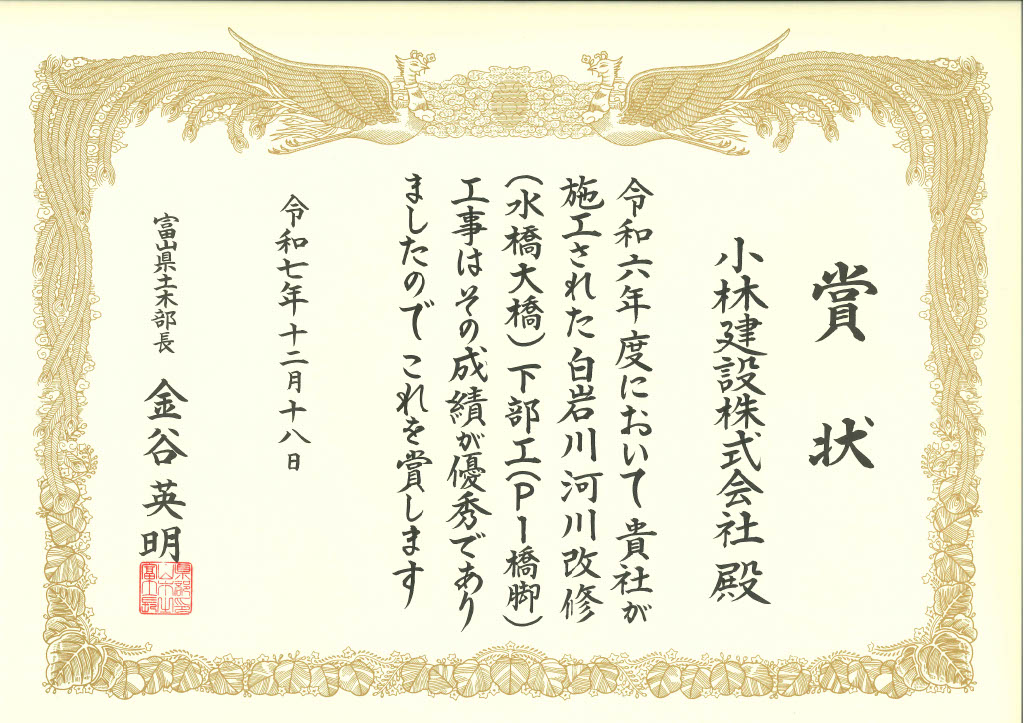 賞状
小林建設株式会社 殿
令和六年度において貴社が
施工された白岩川河川改修
（水橋大橋）下部工（P1橋脚）
工事はその成績が優秀であり
ましたのでこれを賞します
令和七年十二月十八日
富山県土木部長 金谷英明